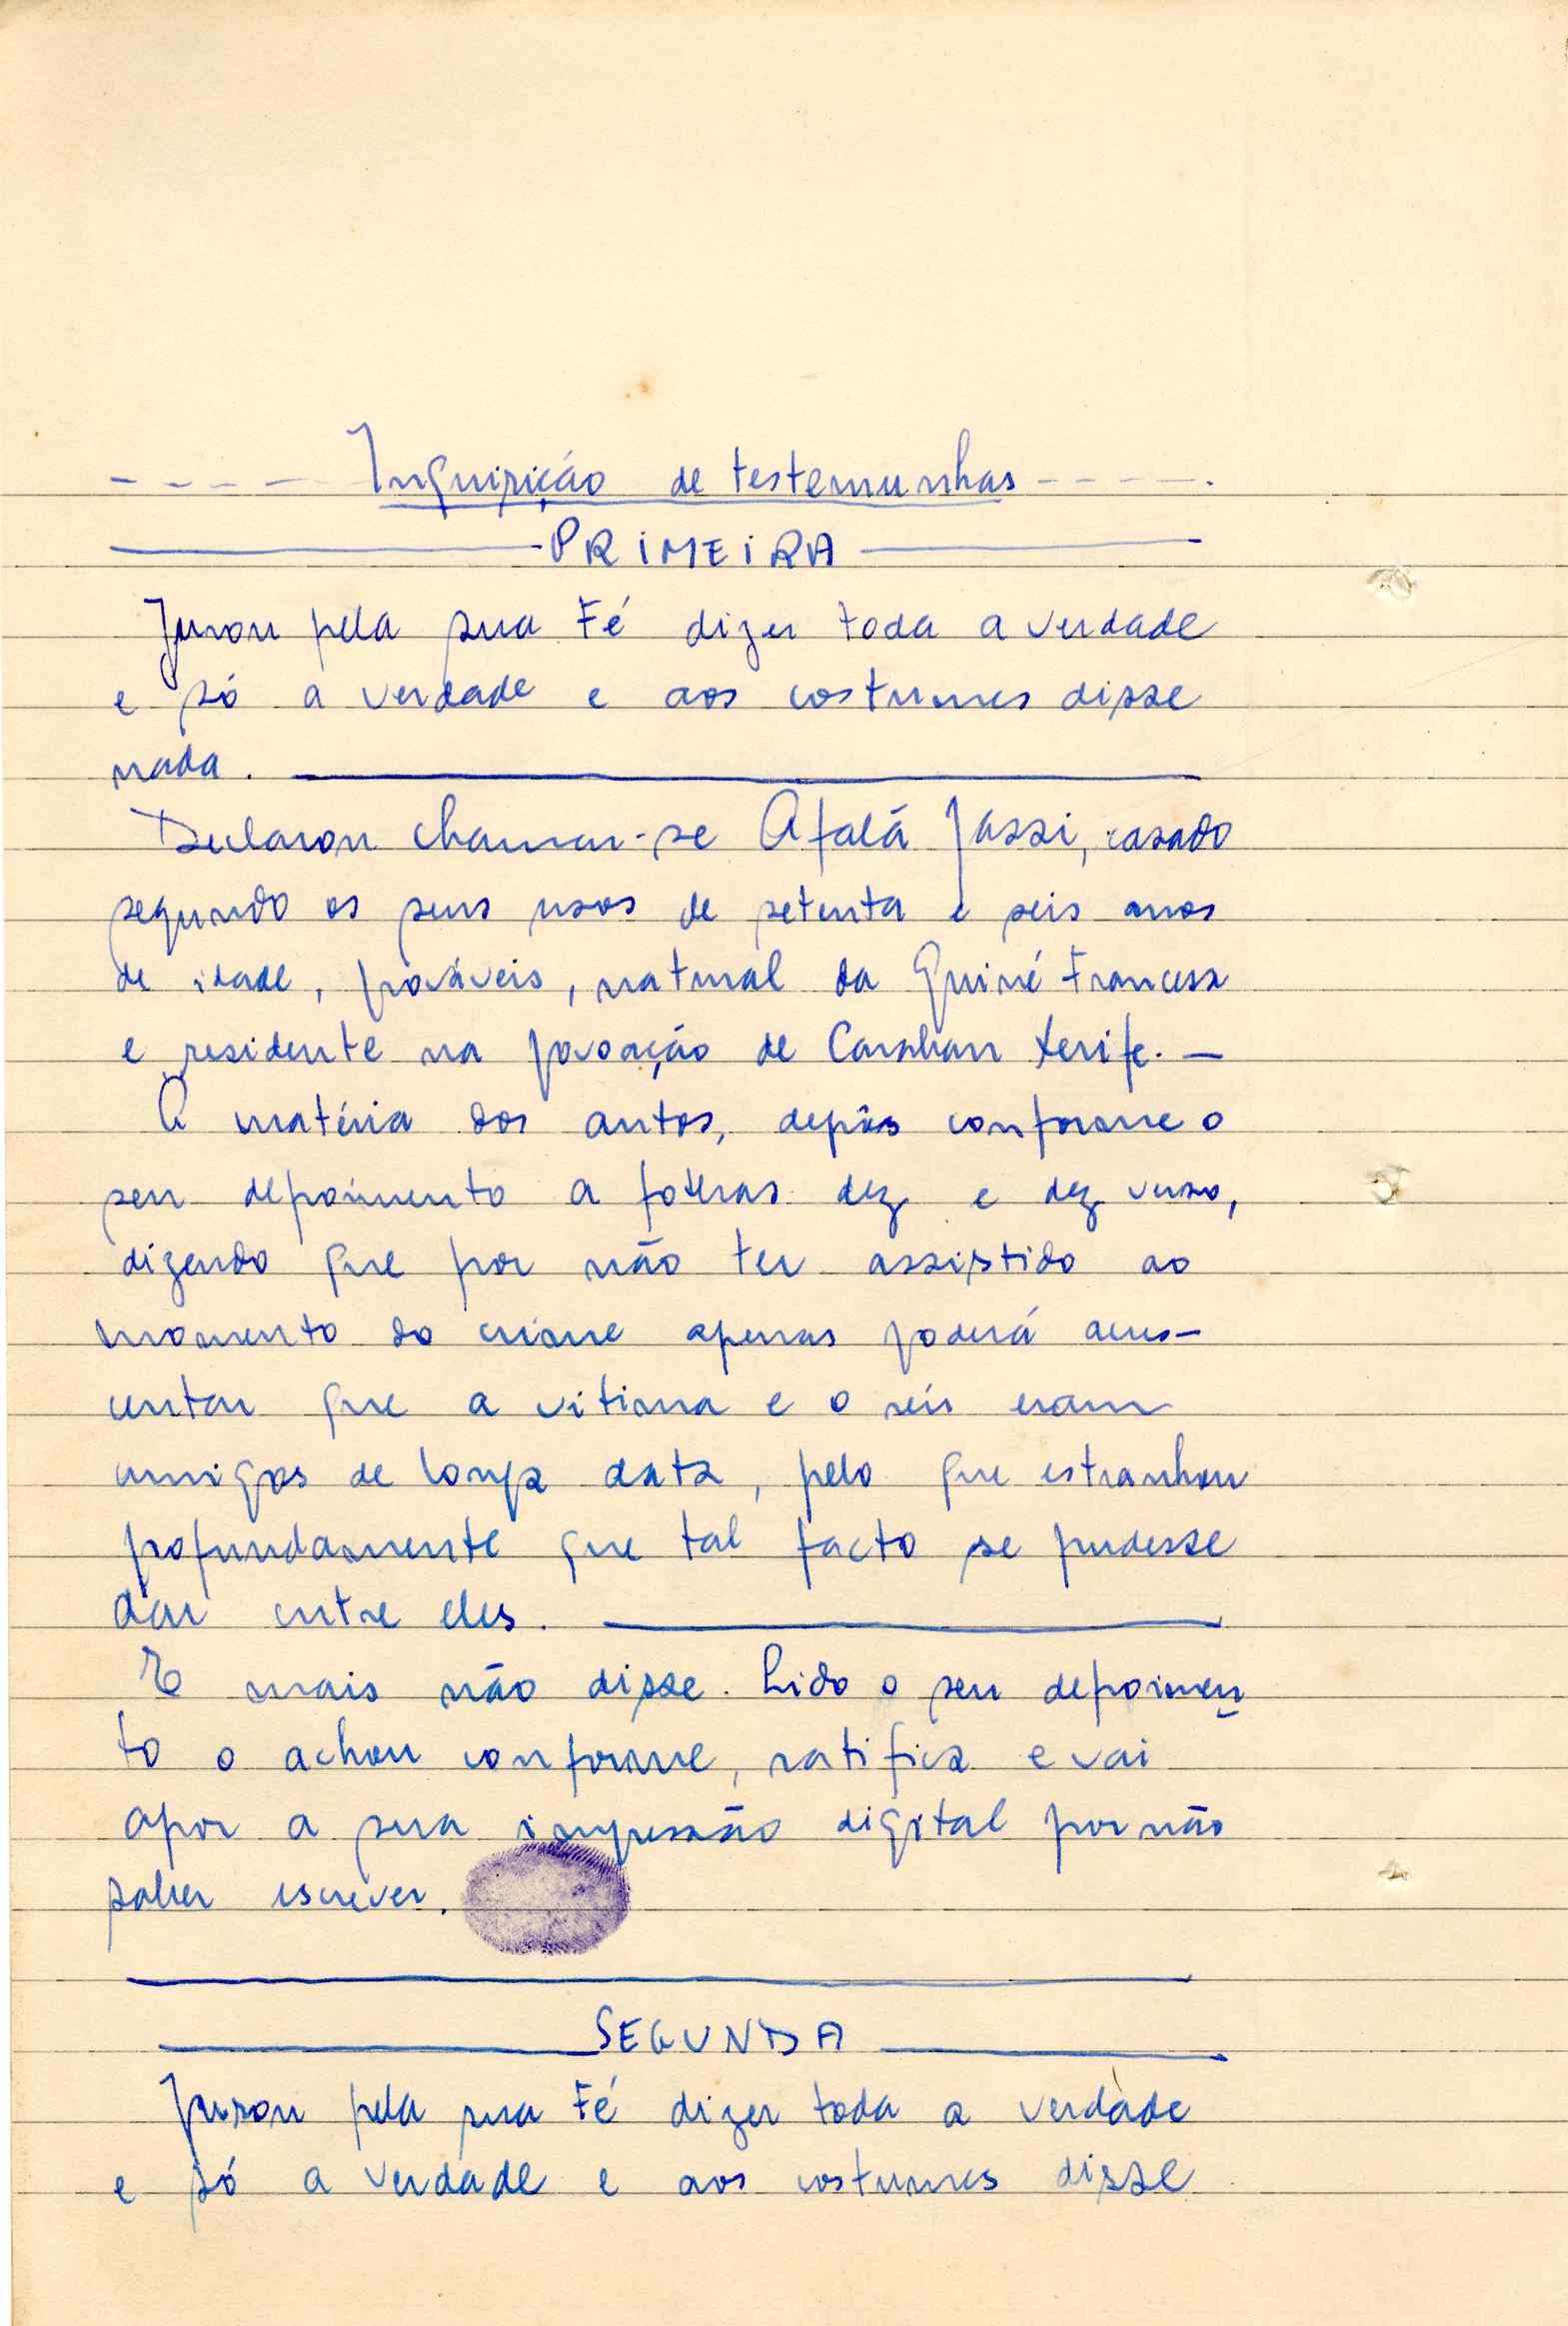 - - - - Inquirição de testemunhas - - - - .
PRIMEIRA
Jurou pela sua Fé dizer toda a verdade
e só a verdade e aos costumes disse
nada.
Declarou chamar-se Afalá Jassi, casado
segundo os seus usos de setenta e seis anos
de idade, prováveis, natural da Guiné Francesa
e residente na povoação de Xerife. —
À matéria dos autos, depôs conforme o
seu depoimento a folhas dez e dez verso,
dizendo que por não ter assistido ao
momento do crime apenas poderá acres-
centar que a vitima e o réu eram
amigos de longa data, pelo que estranhou
profundamente que tal facto se pudesse
dar entre eles.
E mais não disse. Lido o seu depoimen
to o achou conforme, ratifica e vai
apor a sua impressão digital por não
saber escrever.
SEGUNDA
Jurou pela sua Fé dizer toda a verdade
e só a verdade e aos costumes disse